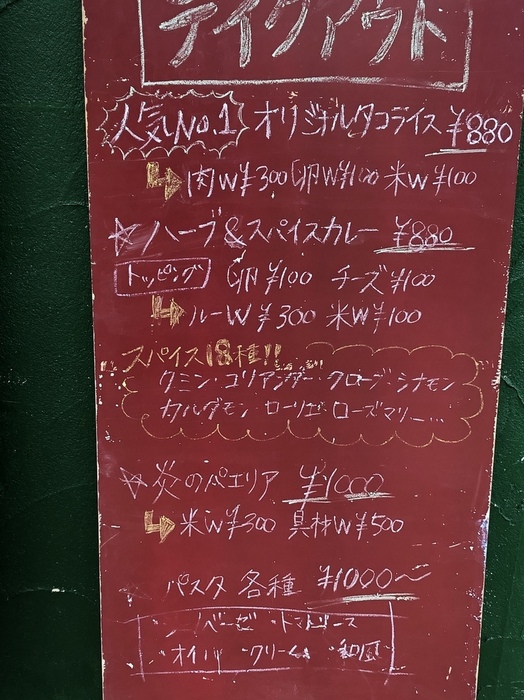 テイクアウト
人気No.1 オリジナルタコライス ¥880
肉W¥300 卵W¥100 米W¥100
☆ハーブ&スパイスカレー ¥880
トッピング 卵¥100 チーズ¥100
ルーW¥300 米W¥100
スパイス18種!!
クミン・コリアンダー・クローブ・シナモン
カルダモン・ローリエ・ローズマリー...
☆炎のパエリア ¥1000
米W¥300 具材W¥500
パスタ 各種 ¥1000〜
・トマトソース
・クリーム ・和風